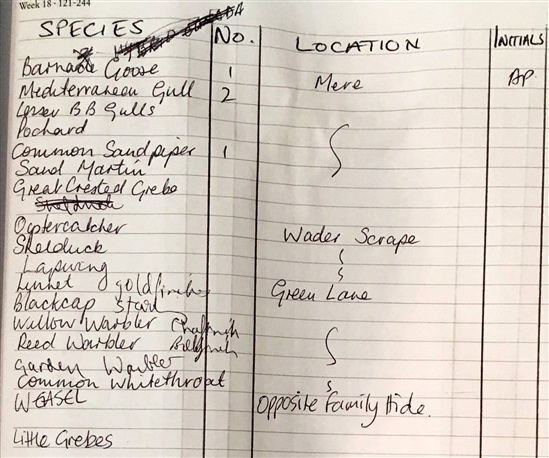 Week 18 · 121-244
SPECIES No. LOCATION INITIALS
Barnacle Goose 1 Mere AP
Mediterranean Gull 2
Lesser BB Gulls
Pochard
Common Sandpiper 1
Sand Martin
Great Crested Grebe
Shelduck
Oystercatcher Wader Scrape
Shelduck
Lapwing
Lynnet goldfinches Green Lane
Blackcap
Willow Warbler Chaffinch
Reed Warbler Bullfinch
Garden Warbler
Common Whitethroat
WEASEL Opposite Family Hide.
Little Grebes